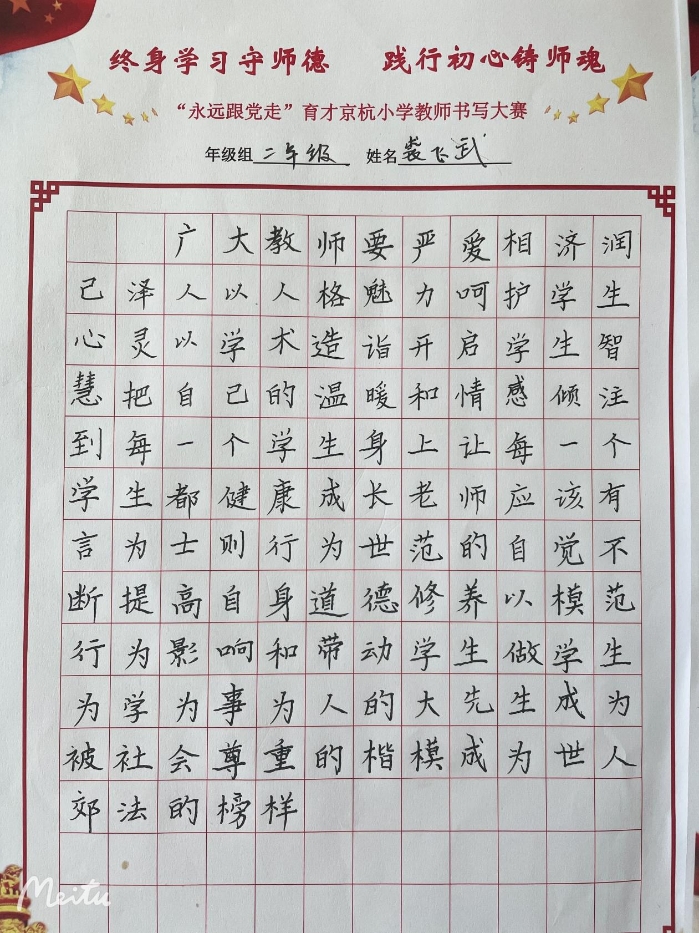 终身学习守师德 践行初心铸师魂
“永远跟党走”育才京杭小学教师书写大赛
年级组 二年级 姓名 裘飞武
广大教师要严爱相济润
己泽人以人格魅力呵护学生
心灵以学术造诣开启学生智
慧把自己的温暖和情感倾注
到每一个学生身上让每一个
学生都健康成长老师应该有
言为士则行为世范的自觉不
断提高自身道德修养以模范
行为影响和带动学生做学生
为学为事为人的大先生成为
被社会尊重的楷模成为世人
郊法的榜样
Meitu